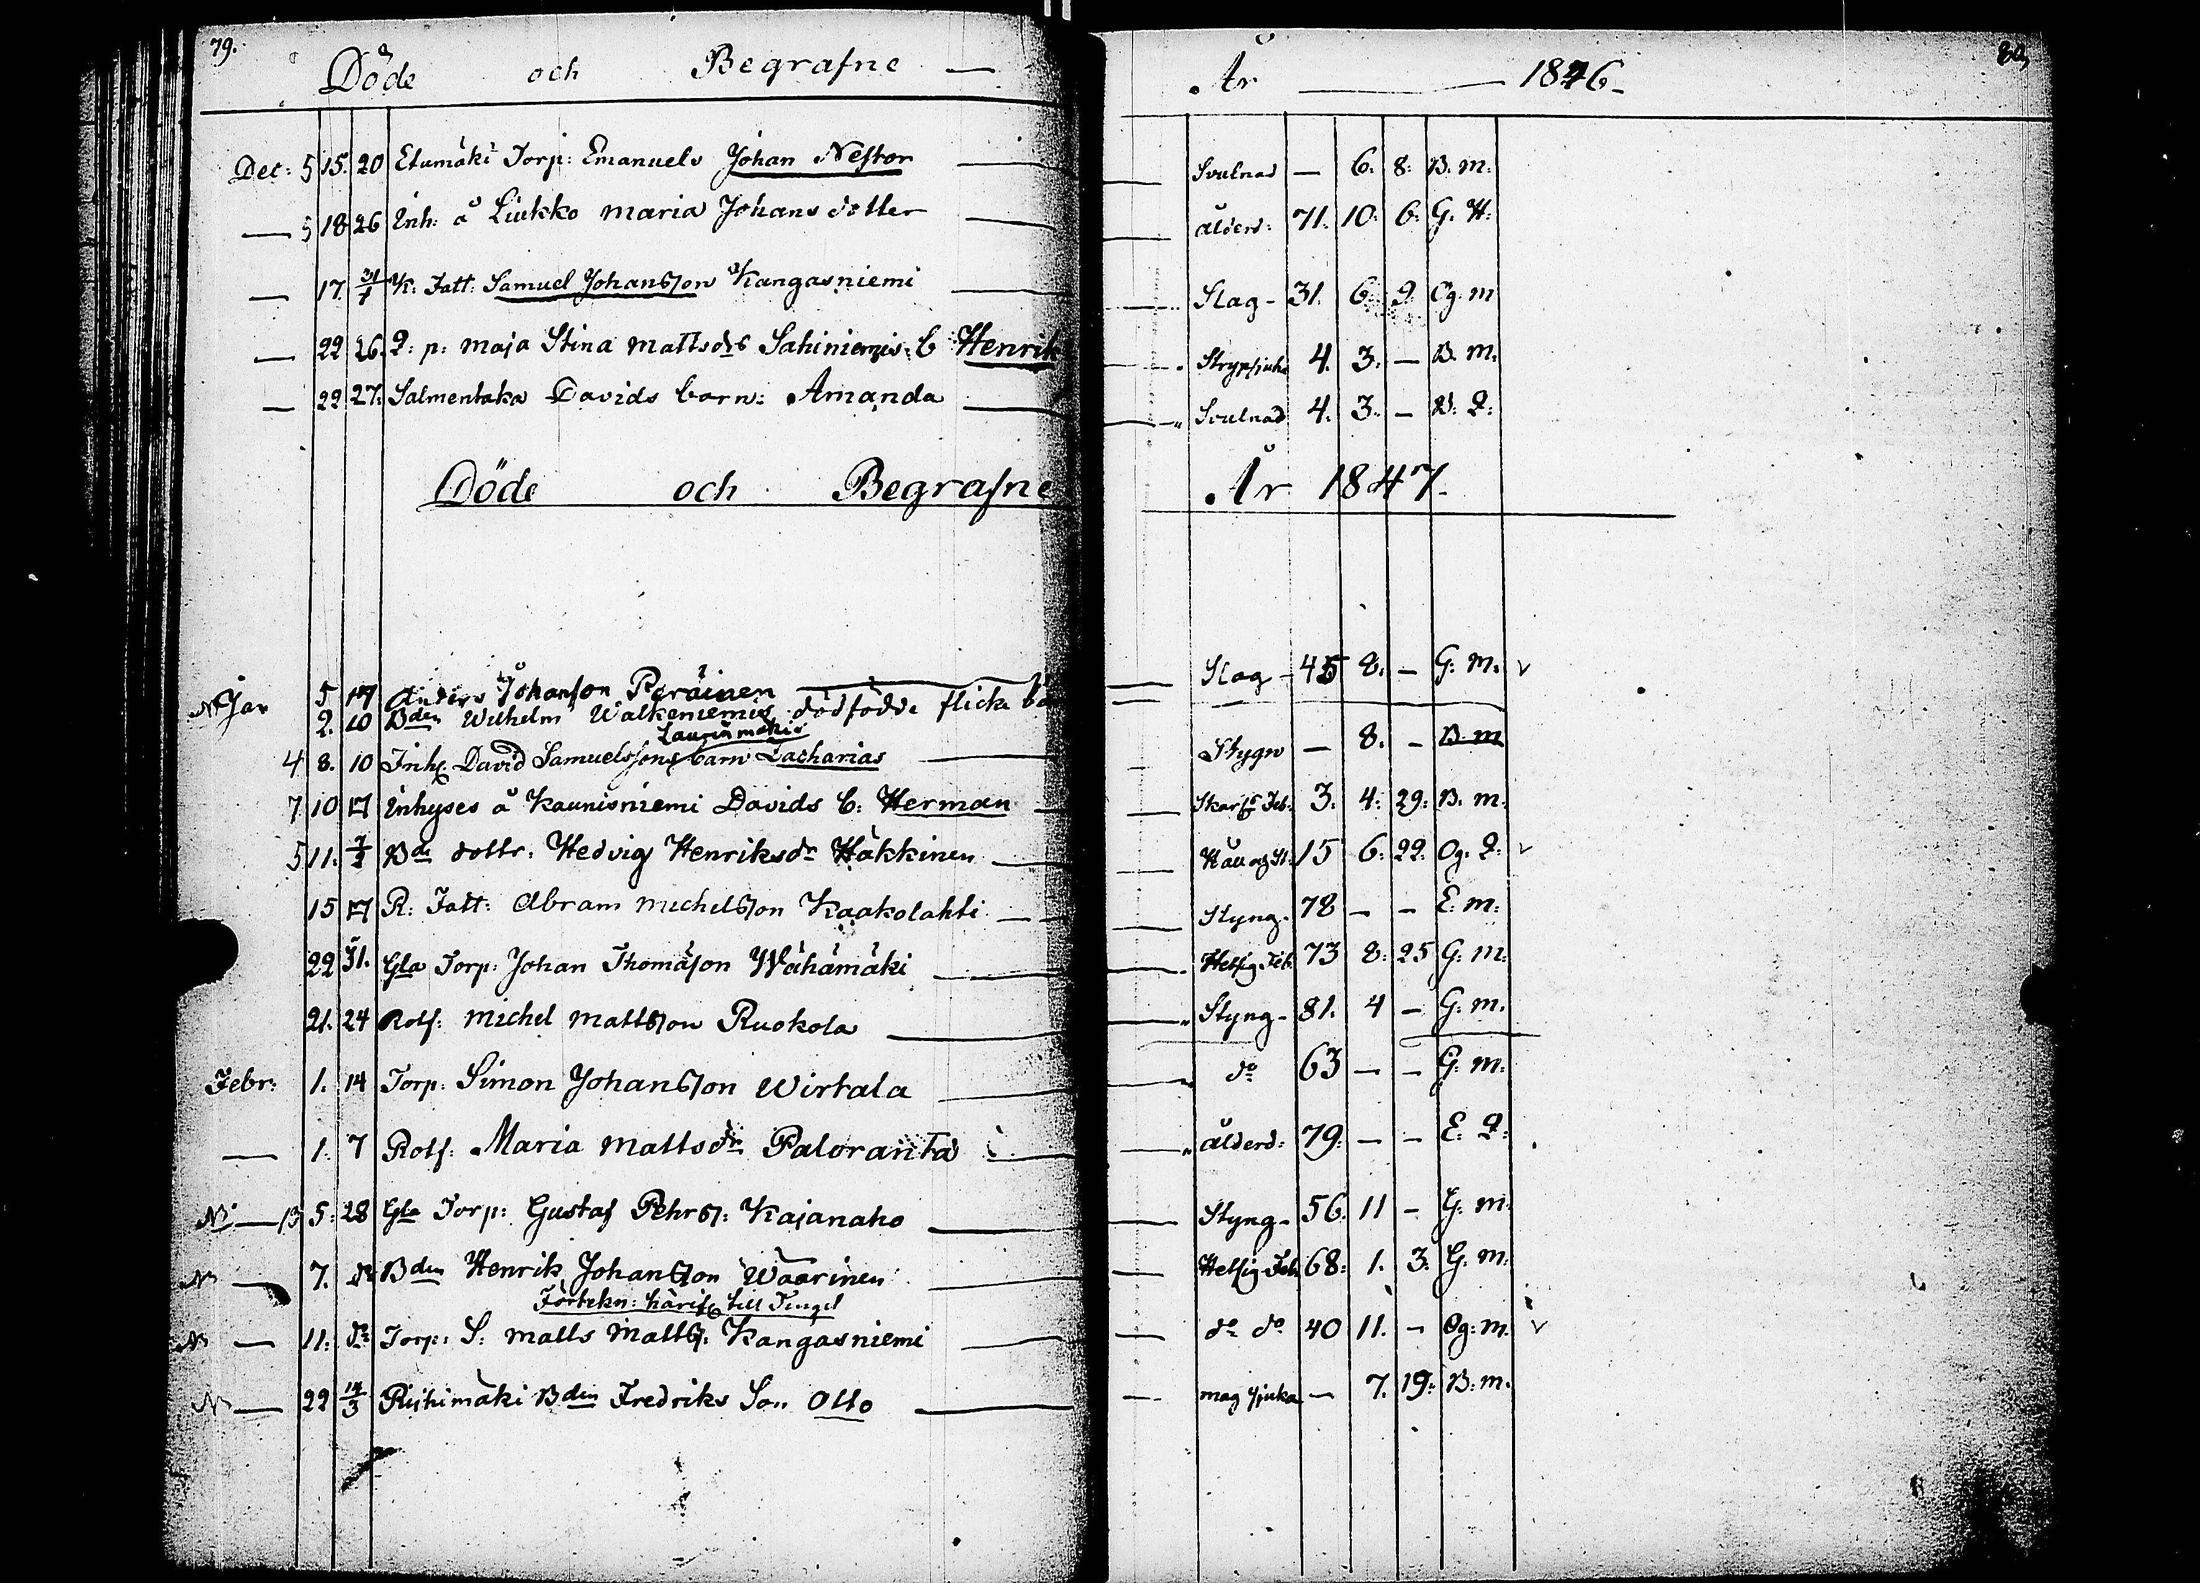 79. Döde och Begrafne — År — 1846. 80,
Dec: 5 15. 20 Etumäki Torp: Emanuels Johan Nestor — Svulnad — 6. 8: B. m:
— 5 18 26 Inh: å Liukko Maria Johans dotter — ålderd: 71. 10: 6: G. H:
— 17. 31/1 K. Fatt: Samuel Johansson Kangasniemi — Slag - 31. 6. 9. Og. m
— 22 26. Q: p: Maja Stina Mattsdr Sahiniemis: b Henrik — Strypsjuka 4. 3. — B. m.
— 22 27. Salmentaka Davids barn: Amanda — Svulnad 4. 3. — B. Q:
Döde och Begrafne År 1847.
N Jan 5 17 Anders Johanson Peräinen — Slag - 45 8. — G. m. v
2. 10 Bden Wilhelm Walkeniemis dödfödde flicke
Laurinmäki
4 8. 10 Inh. David Samuelssons barn Zacharias — Stygn — 8. — B. m
7 10 17 Inhyses å Kaunisniemi Davids b: Herman — Skarl: Feb. 3. 4: 29: B. m.
5 11. Bde dottr. Hedvig Henriksdr Häkkinen — Håll och St. 15 6: 22: Og. Q: v
15 17 R: Fatt: Abram Michelsson Kaakolahti — Styng. 78 — — E. m:
22 31. Gla Torp: Johan Thomason Wähämäki — Hetsig Feb 73 8: 25 G. m:
21. 24 Rotf: Michel Mattsson Ruokola — Styng - 81. 4 — G. m.
Febr: 1. 14 Torp: Simon Johansson Wirtala — do 63 — — G. m.
— 1. 7 Rotf: Maria Mattsdr Paloranta — ålderd: 79. — — E. Q:
N — 13 5. 28 Gla Torp: Gustaf Pehrss: Kajanaho — Styng - 56. 11 — G. m.
N — 7. do Bden Henrik Johansson Waarinen — Hetsig Feb 68. 1. 3. G. m.
Förtekn: härif till Tingel
N — 11. do Torp: S: Matts Matts: Kangasniemi — do do 40 11. — Og: m. v
N — 22 14/3 Riihimäki Bden Fredriks Son Otto — mag sjuka — 7. 19: B: m.